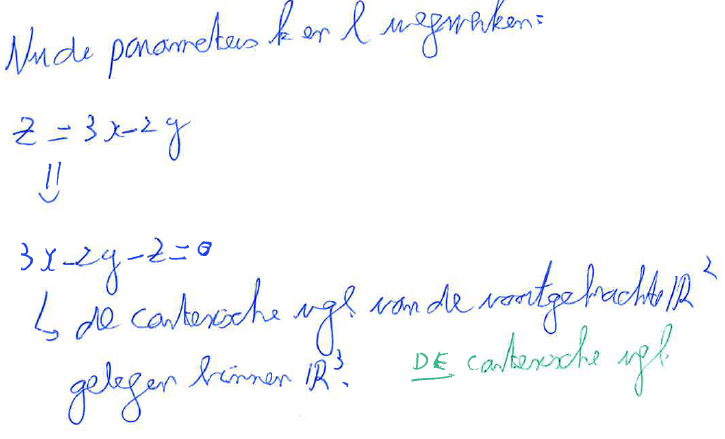 Nu de parameters k en l wegwerken:
z = 3x-2y
⇓
3x-2y-z=0
↳ de cartesische vgl. van de voortgebrachte ℝ²
gelegen binnen ℝ³.
DE cartesische vgl.